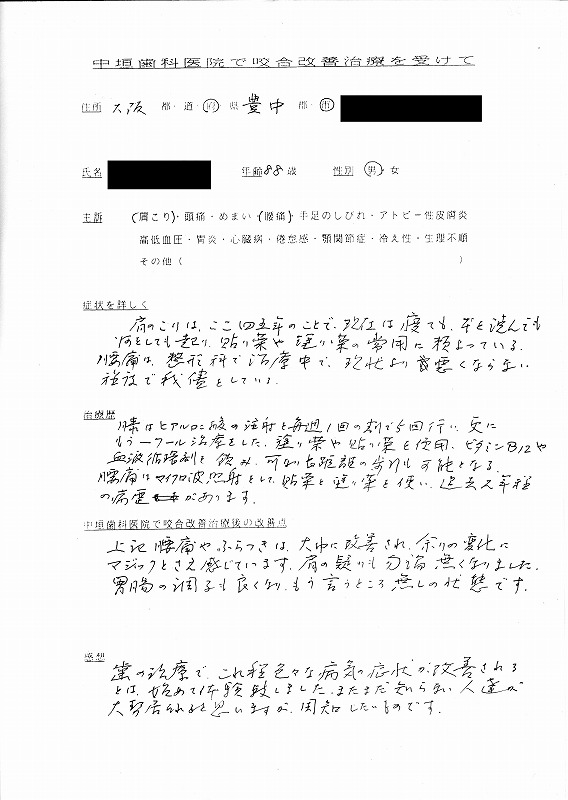 中垣歯科医院で咬合改善治療を受けて
住所 大阪 都・道・府・県 豊中 郡・市
氏名 年齢88歳 性別 男・女
主訴 (肩こり)・頭痛・めまい・(腰痛)手足のしびれ・アトピー性皮膚炎
高低血圧・胃炎・心臓病・倦怠感・顎関節症・冷え性・生理不順
その他( )
症状を詳しく
肩のこりは、ここ四五年のことで、現在は寝ても、本を読んでも
何をしても起り、貼り薬や塗り薬の常用に頼よっている。
腰痛は、整形科で治療中で、現状より悪くならない
程度で我儘としている。
治療歴
膝はヒアルロン酸の注射を毎週1回の割で5回行い、更に
もう一クール治療をした。塗り薬や貼り薬を使用、ビタミンB12や
血液循環剤を飲み、可なり長距離の歩行も可能となる。
腰痛はマイクロ波照射をして、貼薬と塗り薬を使い、過去2年程
の病歴があります。
中垣歯科医院で咬合改善治療後の改善点
上記腰痛やふらつきは、大巾に改善され、余りの変化に
マジックとさえ感じています。肩の凝りも勿論無くなりました。
胃腸の調子も良くなり、もう言うところ無しの状態です。
感想
歯の治療で、これ程色々な病気の症状が改善される
とは、始めて体験致しました。まだまだ知らない人達が
大勢居られると思いますが、周知したいものです。